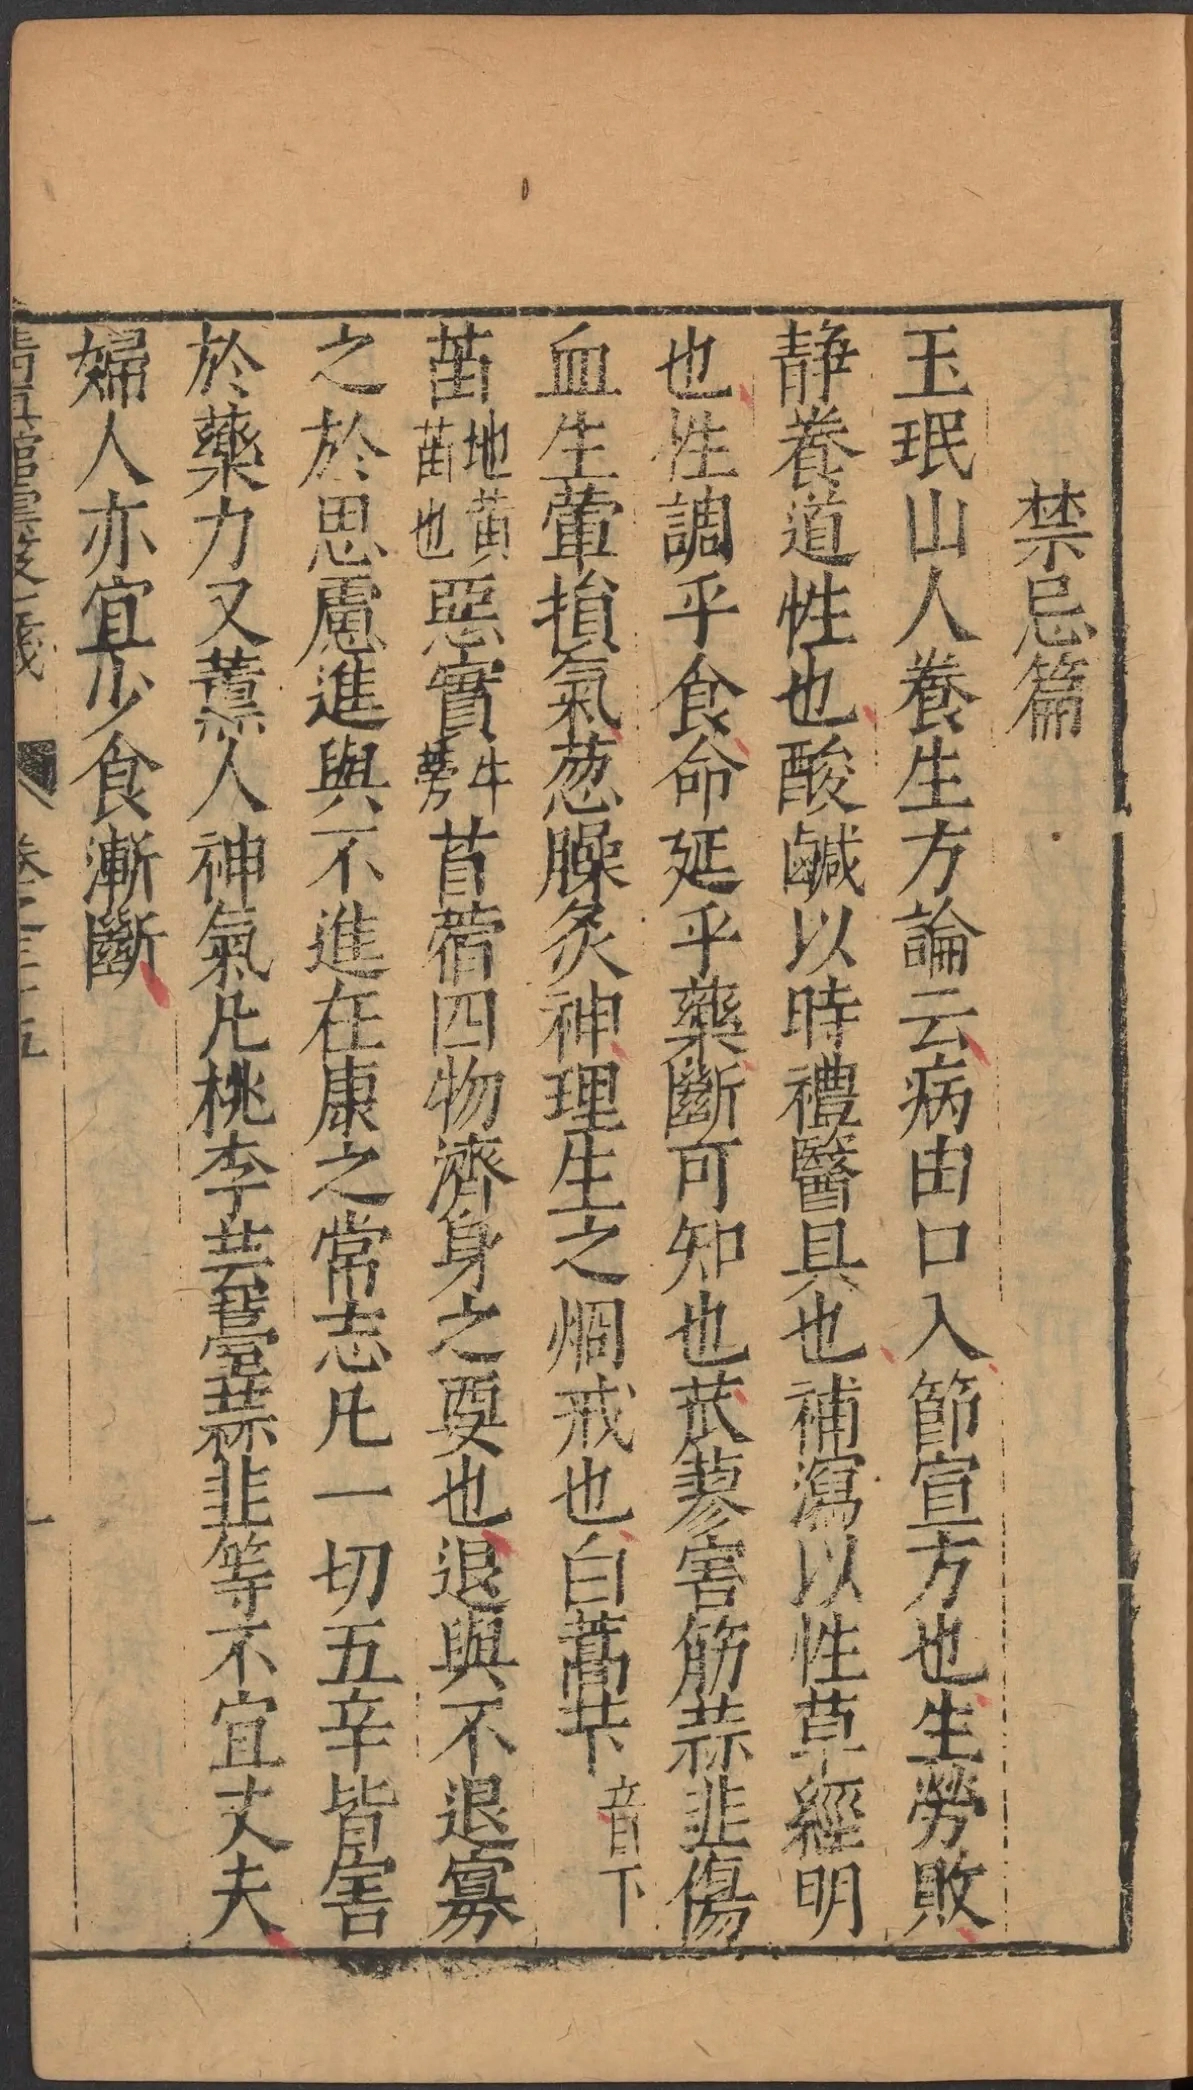 禁忌篇
玉珉山人養生方論云病由口入節宣方也生勞敗
静養道性也酸鹹以時禮醫具也補瀉以性草經明
也性調乎食命延乎藥斷可知也芪蓼害筋蒜韭傷
血生葷損氣葱臊炙神理生之烱戒也白蒿苄音下
苗地黄苗也惡實牛蒡苜蓿四物濟身之要也退與不退寡
之於思慮進與不進在康之常志凡一切五辛皆害
於藥力又薰人神氣凡桃李芸薹蒜韭等不宜丈夫
婦人亦宜少食漸斷